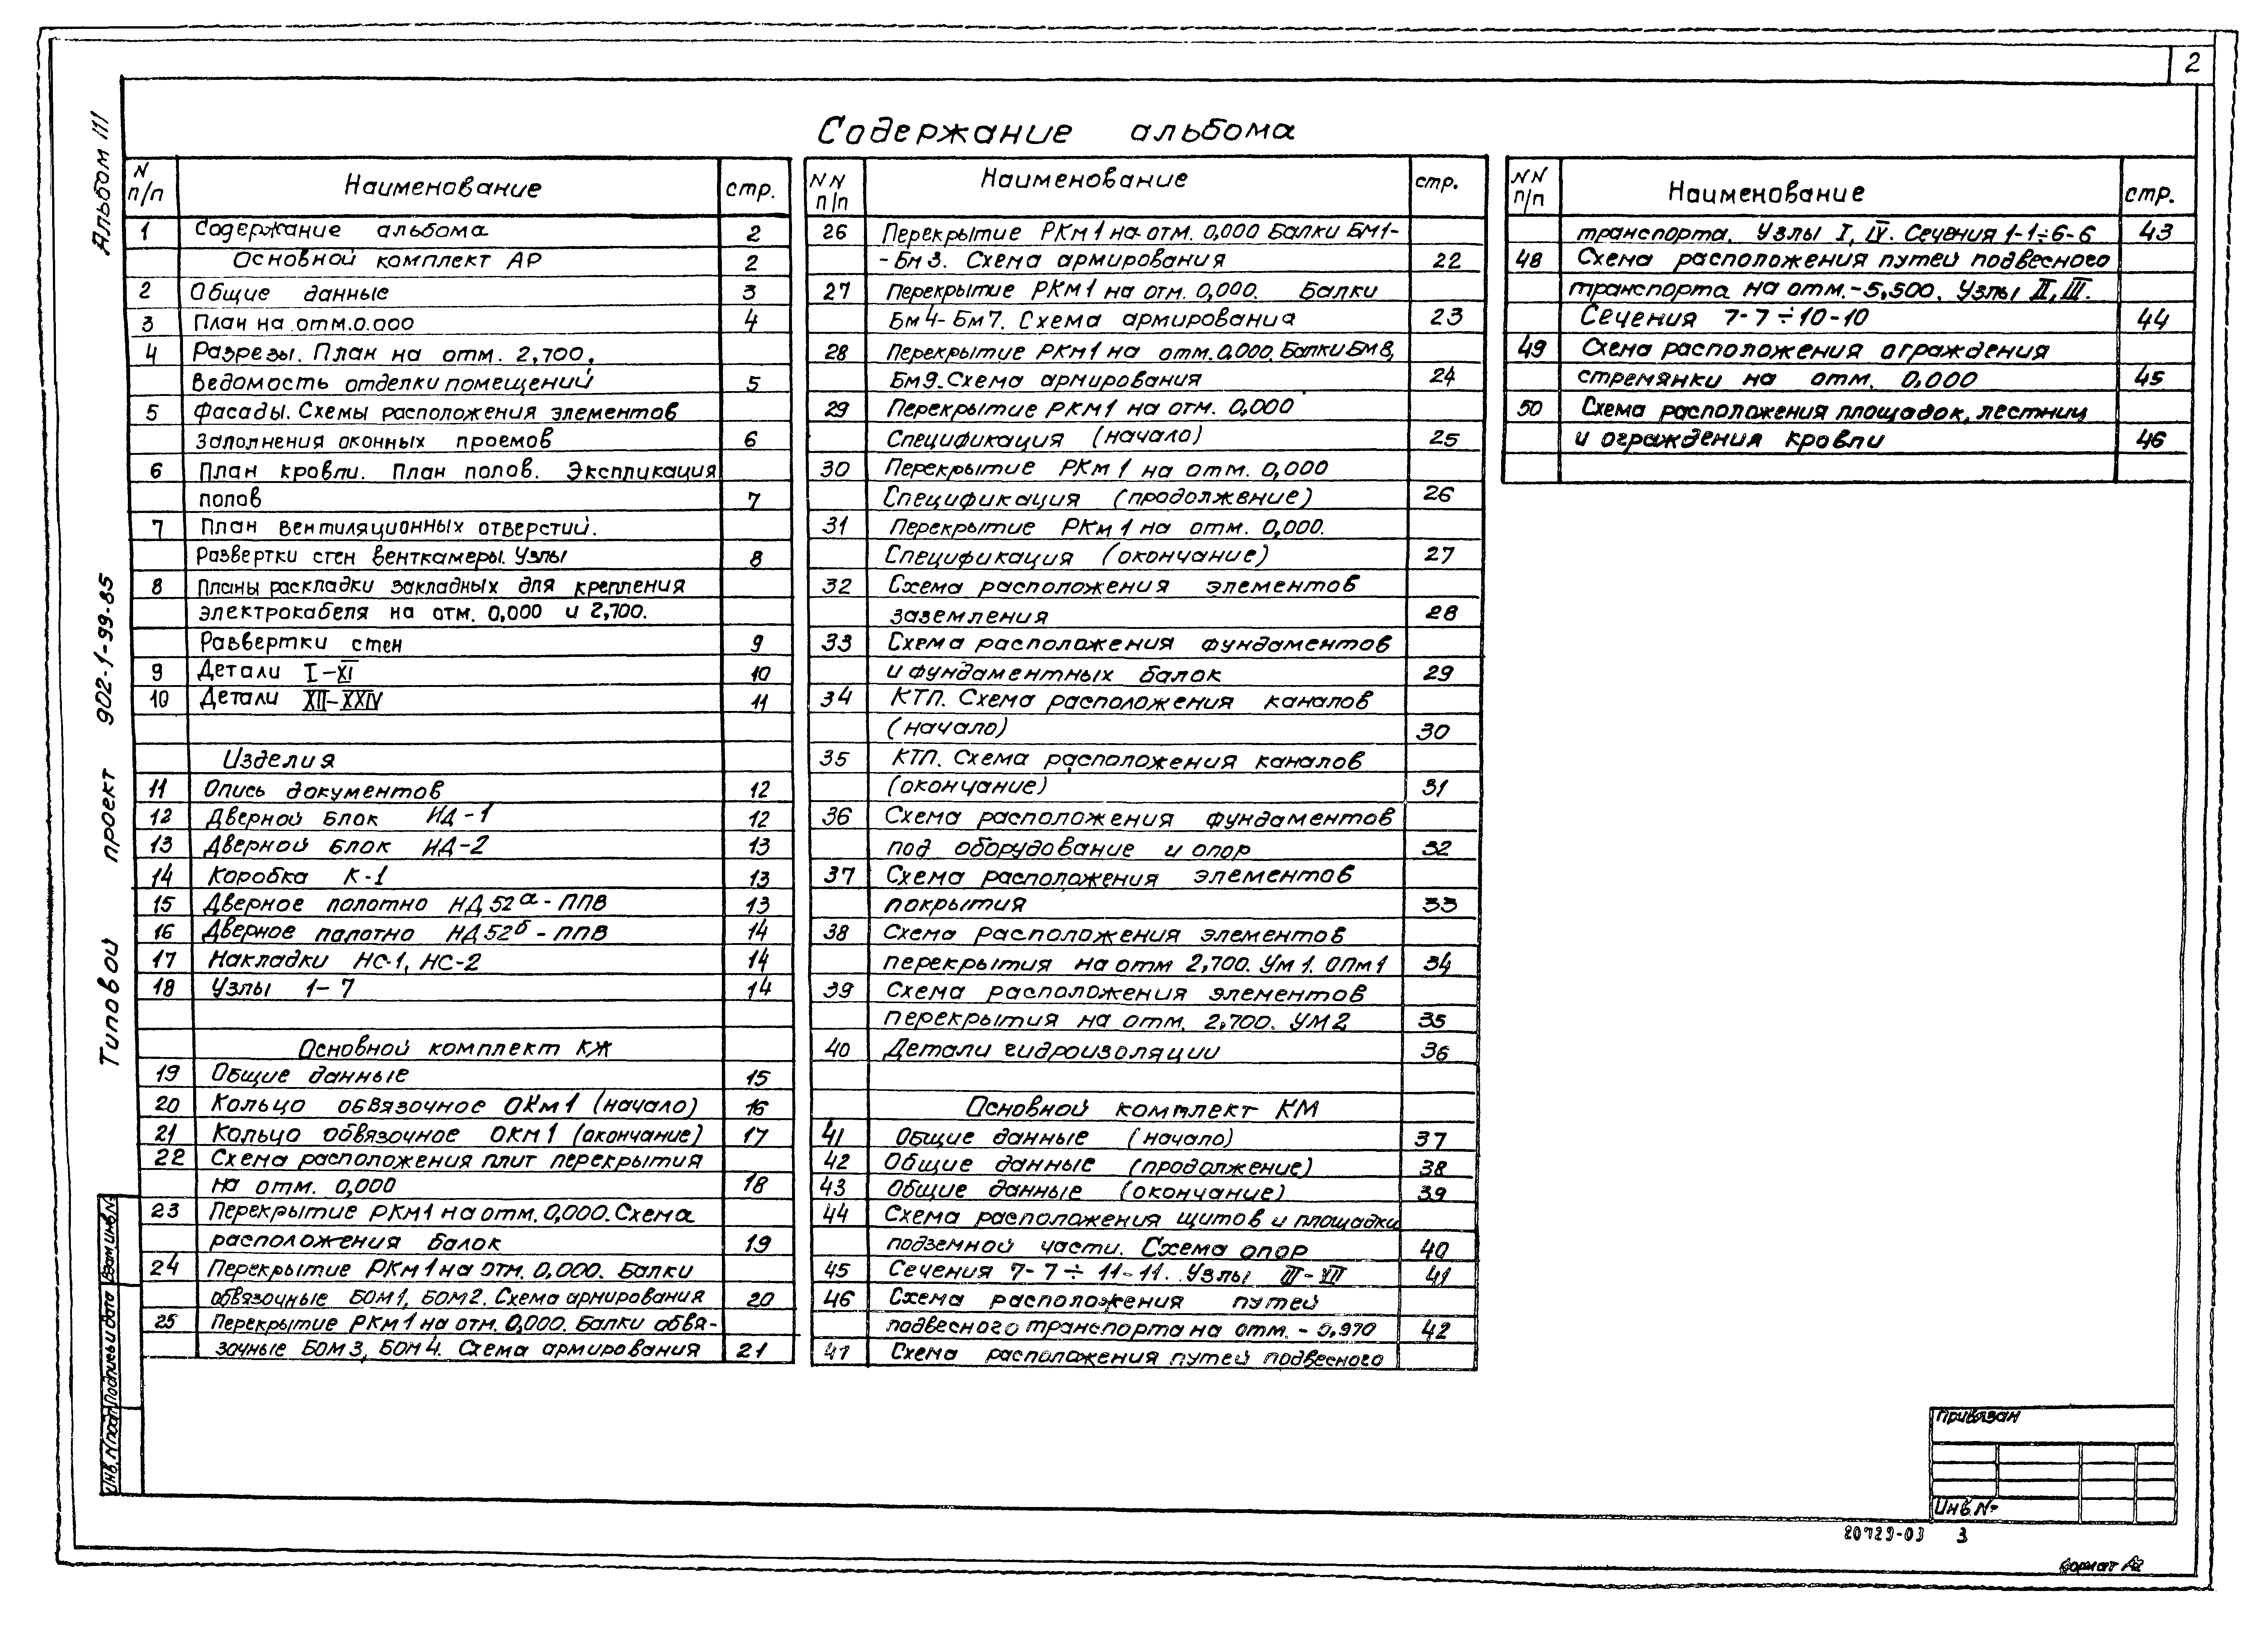 2
Альбом III
Содержание альбома
N п/п Наименование стр.
1 Содержание альбома 2
Основной комплект АР 2
2 Общие данные 3
3 План на отм.0.000 4
4 Разрезы. План на отм. 2,700,
Ведомость отделки помещений 5
5 Фасады. Схемы расположения элементов
заполнения оконных проемов 6
6 План кровли. План полов. Экспликация
полов 7
7 План вентиляционных отверстий.
Развертки стен венткамеры. Узлы 8
8 Планы раскладки закладных для крепления
электрокабеля на отм. 0,000 и 2,700.
Развертки стен 9
9 Детали I-XI 10
10 Детали XII-XXIV 11
Изделия
11 Опись документов 12
12 Дверной блок НД-1 12
13 Дверной блок НД-2 13
14 Коробка К-1 13
15 Дверное полотно НД52а-ППВ 13
16 Дверное полотно НД52б-ППВ 14
17 Накладки НС-1, НС-2 14
18 Узлы 1-7 14
Основной комплект КЖ
19 Общие данные 15
20 Кольцо обвязочное ОКм1 (начало) 16
21 Кольцо обвязочное ОКМ1 (окончание) 17
22 Схема расположения плит перекрытия
на отм. 0,000 18
23 Перекрытие РКм1 на отм. 0,000. Схема
расположения балок 19
24 Перекрытие РКм1 на отм. 0,000. Балки
обвязочные БОМ1, БОМ2. Схема армирования 20
25 Перекрытие РКм1 на отм. 0,000. Балки обвя-
зочные БОМ3, БОМ4. Схема армирования 21
NN п/п Наименование стр.
26 Перекрытие РКм1 на отм. 0,000 Балки БМ1-
-Бм3. Схема армирования 22
27 Перекрытие РКм1 на отм. 0,000. Балки
Бм4-Бм7. Схема армирования 23
28 Перекрытие РКм1 на отм. 0,000. Балки БМ8,
Бм9. Схема армирования 24
29 Перекрытие РКм1 на отм. 0,000
Спецификация (начало) 25
30 Перекрытие РКм1 на отм. 0,000
Спецификация (продолжение) 26
31 Перекрытие РКм1 на отм. 0,000.
Спецификация (окончание) 27
32 Схема расположения элементов
заземления 28
33 Схема расположения фундаментов
и фундаментных балок 29
34 КТП. Схема расположения каналов
(начало) 30
35 КТП. Схема расположения каналов
(окончание) 31
36 Схема расположения фундаментов
под оборудование и опор 32
37 Схема расположения элементов
покрытия 33
38 Схема расположения элементов
перекрытия на отм 2,700. Ум1. ОПм1 34
39 Схема расположения элементов
перекрытия на отм. 2,700. УМ2 35
40 Детали гидроизоляции 36
Основной комплект КМ
41 Общие данные (начало) 37
42 Общие данные (продолжение) 38
43 Общие данные (окончание) 39
44 Схема расположения щитов и площадки
подземной части. Схема опор 40
45 Сечения 7-7÷11-11. Узлы III-VII 41
46 Схема расположения путей
подвесного транспорта на отм. - 0,970 42
47 Схема расположения путей подвесного
NN п/п Наименование стр.
транспорта. Узлы I, IV. Сечения 1-1÷6-6 43
48 Схема расположения путей подвесного
транспорта на отм.-5,500. Узлы II, III.
Сечения 7-7÷10-10 44
49 Схема расположения ограждения
стремянки на отм. 0,000 45
50 Схема расположения площадок, лестниц
и ограждения кровли 46
Типовой проект 902-1-99-85
Взам инв N
Подпись и дата
Инв. N подл
Привязан
Инв. №
20729-03 3
Формат А2